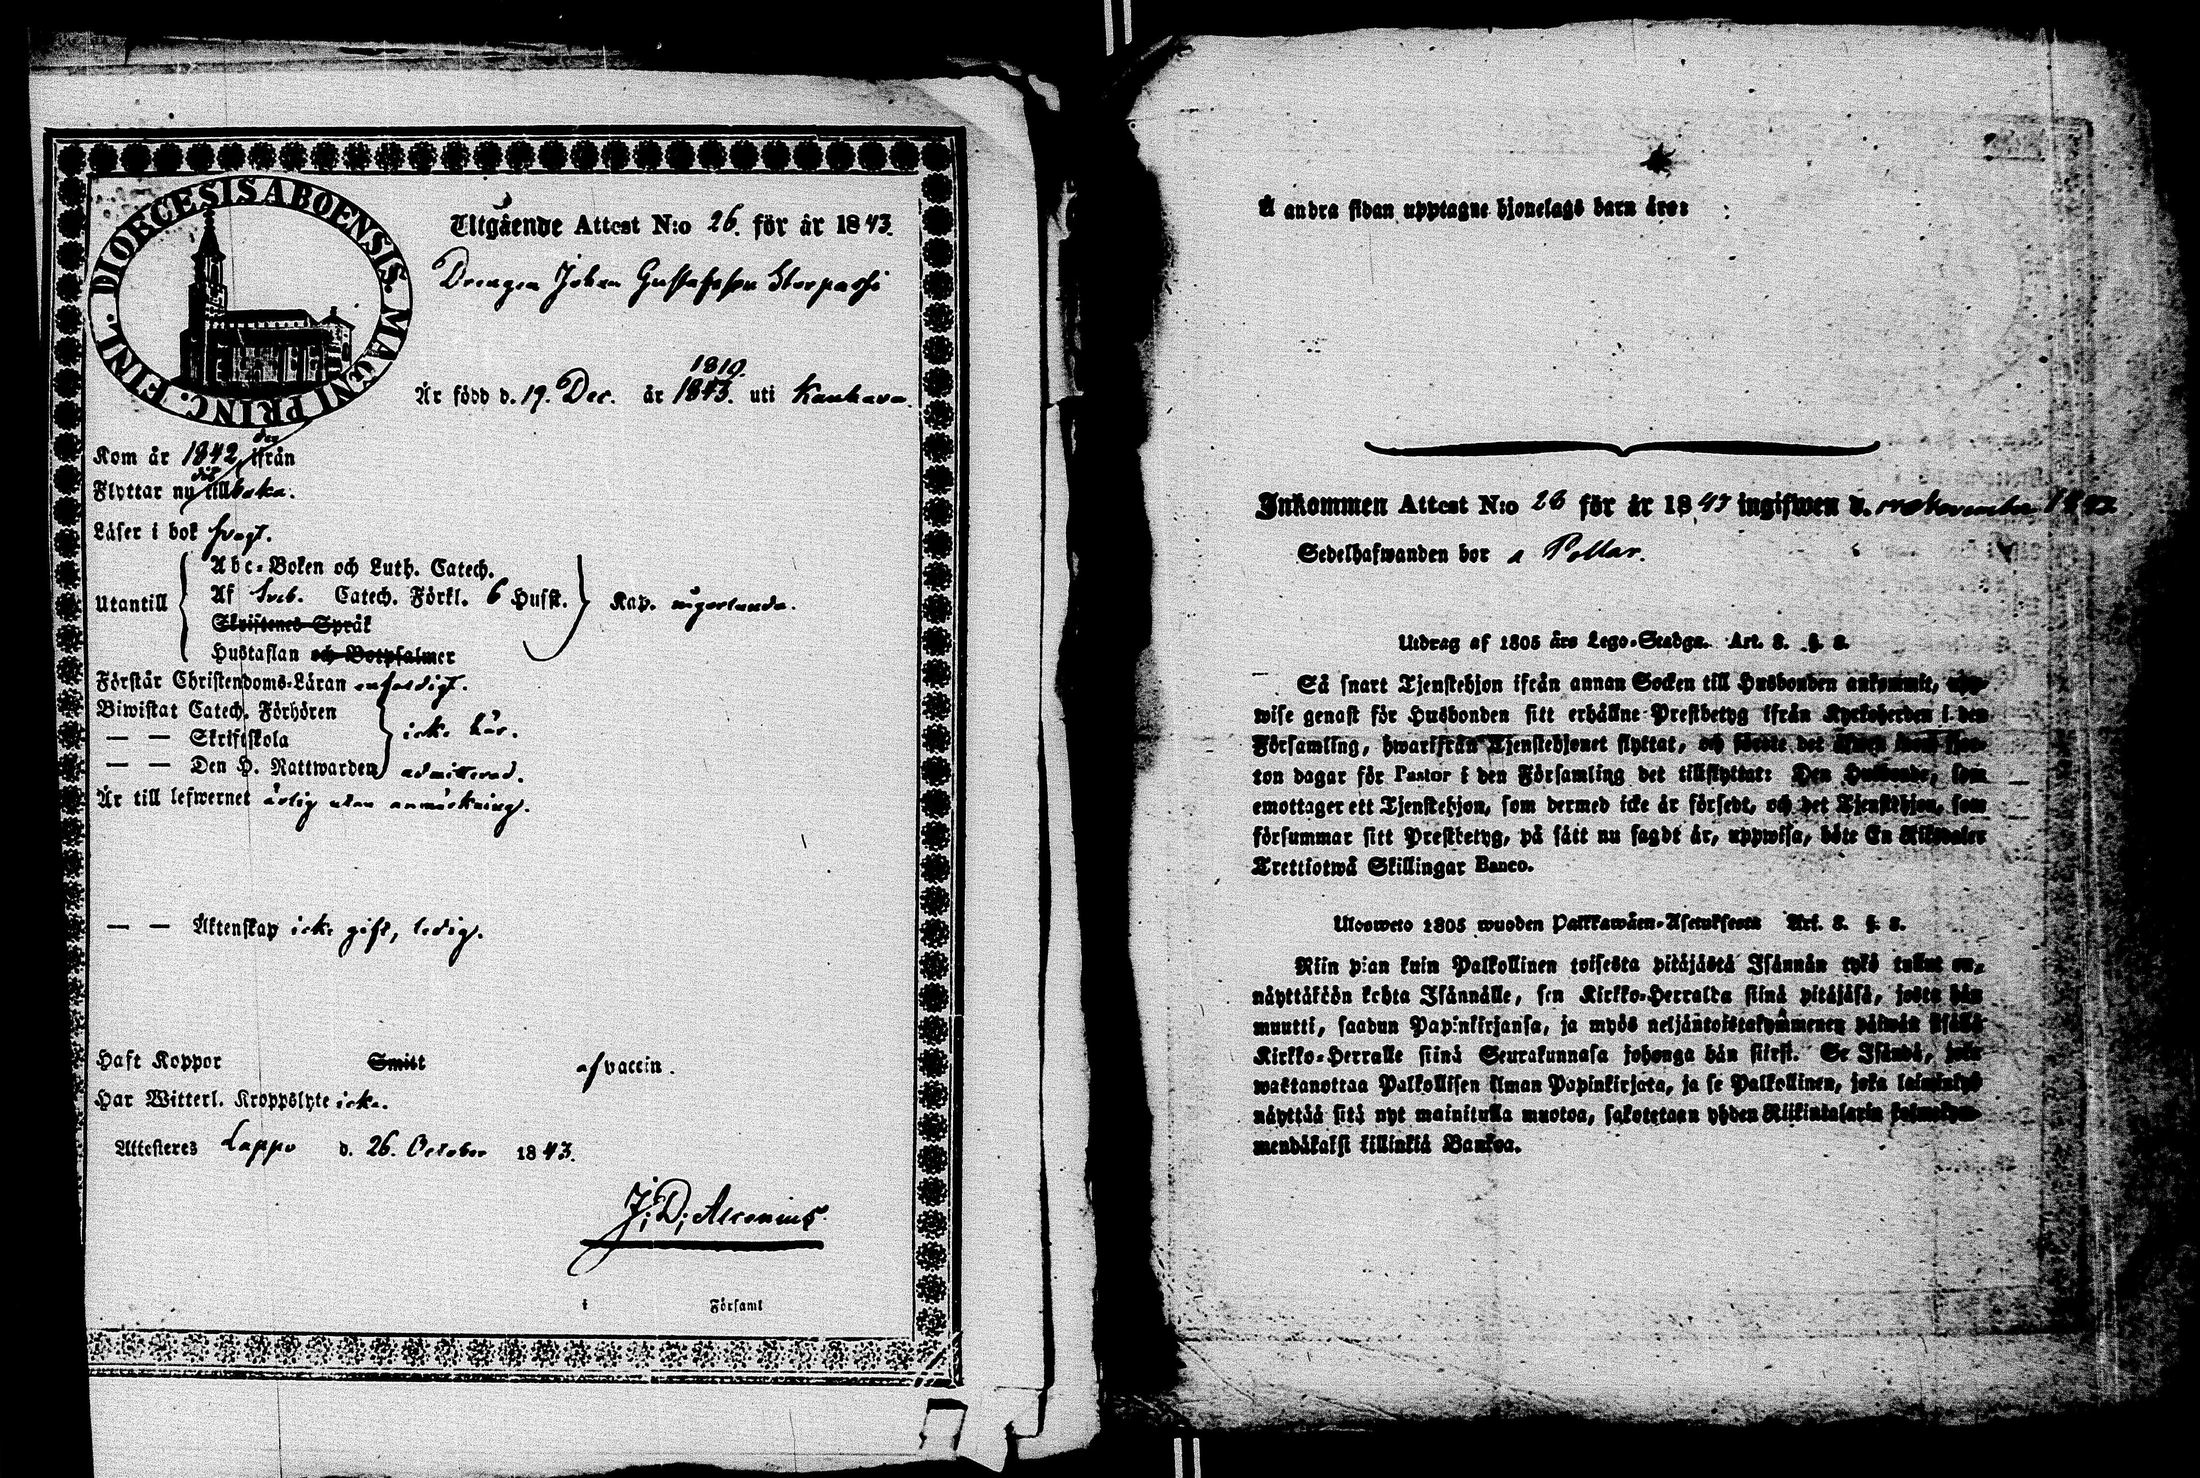 DIOECESIS ABOENSIS. MAGNI PRINC. FINL.
Utgående Attest N:o 26. för år 1843.
Drengen Johan Gustafsson Storpassi
1819.
Är född d. 19. Dec. år 1843. uti Kauhava.
Kom år 1842, ifrån
Flyttar nu tillbaka.
Läser i bok svagt.
Abc-Boken och Luth. Catech.
Utantill Af Sveb. Catech. Förkl. 6 Husst. Kap. någorlunda.
Skriftenes Språk
Hustaflan och Botpsalmer
Förstår Christendoms-Läran enfaldigt.
Biwistat Catech. Förhören
— — Skriftskola icke här.
— — Den H. Nattwarden admitterad.
Är till lefwernet ärlig utan anmärkning.
— — Äktenskap icke gift, ledig.
Haft Koppor Smitt af vaccin.
Har Witterl. Kroppslyte icke.
Attesteres Lappo d. 26. October 1843.
J. D. Alcenius
i Församl
Å andra sidan upptagne hjonelags barn äro:
Inkommen Attest N:o 28 för år 1843 ingifwen d. November 1843
Sedelhafwanden bor a Pollar.
Utdrag af 1805 års Lego-Stadga. Art. 8. §. 8.
Så snart Tjenstehjon ifrån annan Socken till Husbonden ankommit, upp-
wise genast för Husbonden sitt erhållne Prestbetyg ifrån Kyrkoherden i den
Församling, hwarifrån Tjenstehjonet flyttat, och förete det äfwen inom fjor-
ton dagar för Pastor i den Församling det tillflyttat: Den Husbonde, som
emottager ett Tjenstehjon, som dermed icke är försedt, och det Tjenstehjon, som
försummar sitt Prestbetyg, på sätt nu sagdt är, uppwisa, böte En Riksdaler
Trettiotwå Skillingar Banco.
Ulosweto 1805 wuoden Palkkawäen-Asetuksesta Art. 8. §. 8.
Niin pian kuin Palkollinen toisesta pitäjästä Isännän tykö tullut on,
näyttäköön kohta Isännälle, sen Kirkko-Herralta siinä pitäjäsä, josta hän
muutti, saadun Papinkirjansa, ja myös neljäntoistakymmenen päiwän sisällä
Kirkko-Herralle siinä Seurakunnasa johonga hän siirsi. Se Isändä, joka
wastanottaa Palkollisen ilman Papinkirjata, ja se Palkollinen, joka laiminlyö
näyttää sitä nyt mainitulla muotoa, sakotetaan yhden Riikintalarin kolmekym-
mendäkaksi killinkiä Bankoa.